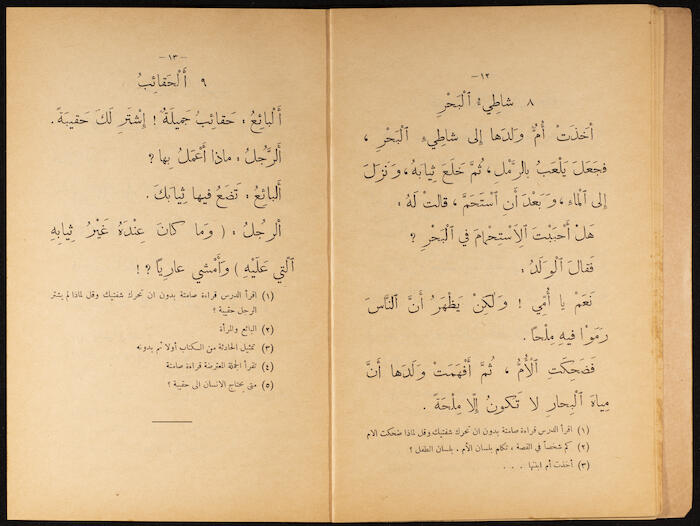 -١٢-
٨ شاطِيءُ ٱلْبَحْرِ
أخَذَتْ أُمٌّ وَلَدَها إلى شاطِيءِ ٱلْبَحْرِ ،
فجَعَلَ يَلْعَبُ بِالرَّمْلِ ، ثُمَّ خَلَعَ ثِيابَهُ ، وَنَزَلَ
إلى ٱلْماءِ ، وَبَعْدَ أَن ٱسْتَحَمَّ ، قالَتْ لَهُ :
هَلْ أَحْبَبْتَ ٱلاِسْتِحْمامَ في ٱلْبَحْرِ ؟
فَقالَ ٱلْوَلَدُ :
نَعَمْ يا أُمّي ! وَلٰكِنْ يَظْهَرُ أَنَّ ٱلنّاسَ
رَمَوْا فيهِ مِلْحًا .
فَضَحِكَتِ ٱلْأُمُّ ، ثُمَّ أَفْهَمَتْ وَلَدَها أَنَّ
مِياهَ ٱلْبِحارِ لا تَكونُ إلّا مِلْحَةً .
(١) اقرأ الدرس قراءة صامتة بدون ان تحرك شفتيك وقل لماذا ضحكت الام
(٢) كم شخصاً في القصة ، تكلم بلسان الأم . بلسان الطفل ؟
(٣) أخذت أم ابنها . . .
-١٣-
٩ أَلْحَقائِبُ
أَلْبائِعُ : حَقائِبُ جَميلَةٌ ! إِشْتَرِ لَكَ حَقيبَةً .
أَلرَّجُلُ : ماذا أَعْمَلُ بِها ؟
أَلبائِعُ : تَضَعُ فيها ثِيابَكَ .
الرجُلُ : ( وَما كانَ عِنْدَهُ غَيْرُ ثِيابِهِ
الَّتي عَلَيْهِ ) وَأَمْشي عارِيًا ؟ !
(١) اقرأ الدرس قراءة صامتة بدون ان تحرك شفتيك وقل لماذا لم يشتر
الرجل حقيبة ؟
(٢) البائع والمرأة
(٣) تمثيل الحادثة من الكتاب أولا ثم بدونه
(٤) تقرأ الجملة المعترضة قراءة صامتة
(٥) متى يحتاج الانسان الى حقيبة ؟